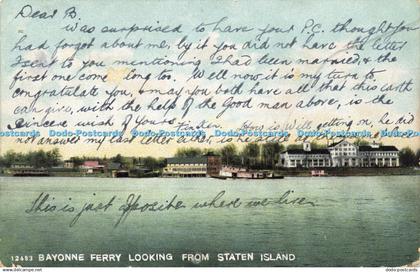 Dear B.
was surprised to have your P.C. thought you
had forgot about me, by it you did not have the letter
I sent to you mentioning I had been married, & the
first one come long too. Well now it is my turn to
congratulate you, & may you both have all that this earth
can give, with the help of the Good man above, is the
sincere wish of yours How is Will getting on, he did
not answer my last letter either, is he
Dodo-Postcards Dodo-Postcards Dodo-Postcards Dodo-Postcards Dodo-Postcards
This is just oposite where we live.
12483 BAYONNE FERRY LOOKING FROM STATEN ISLAND